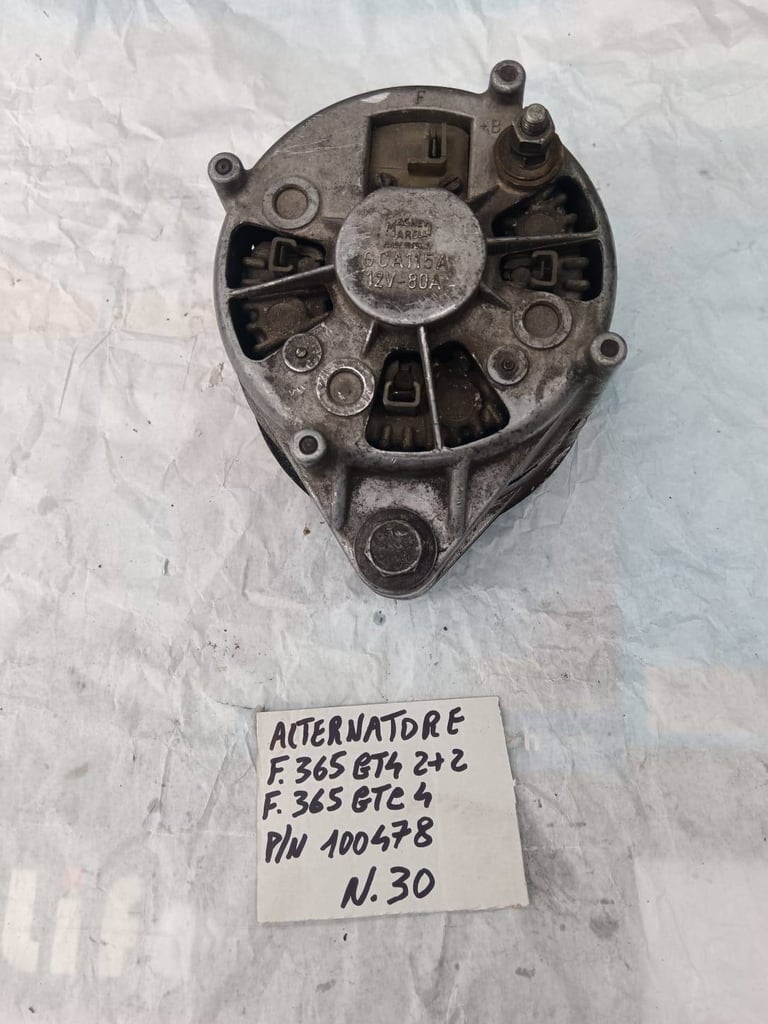 F
+B
MAGNETI
MARELLI
GCA115A
12V-80A
ALTERNATORE
F. 365 GT4 2+2
F. 365 GTC 4
P/N 100478
N.30